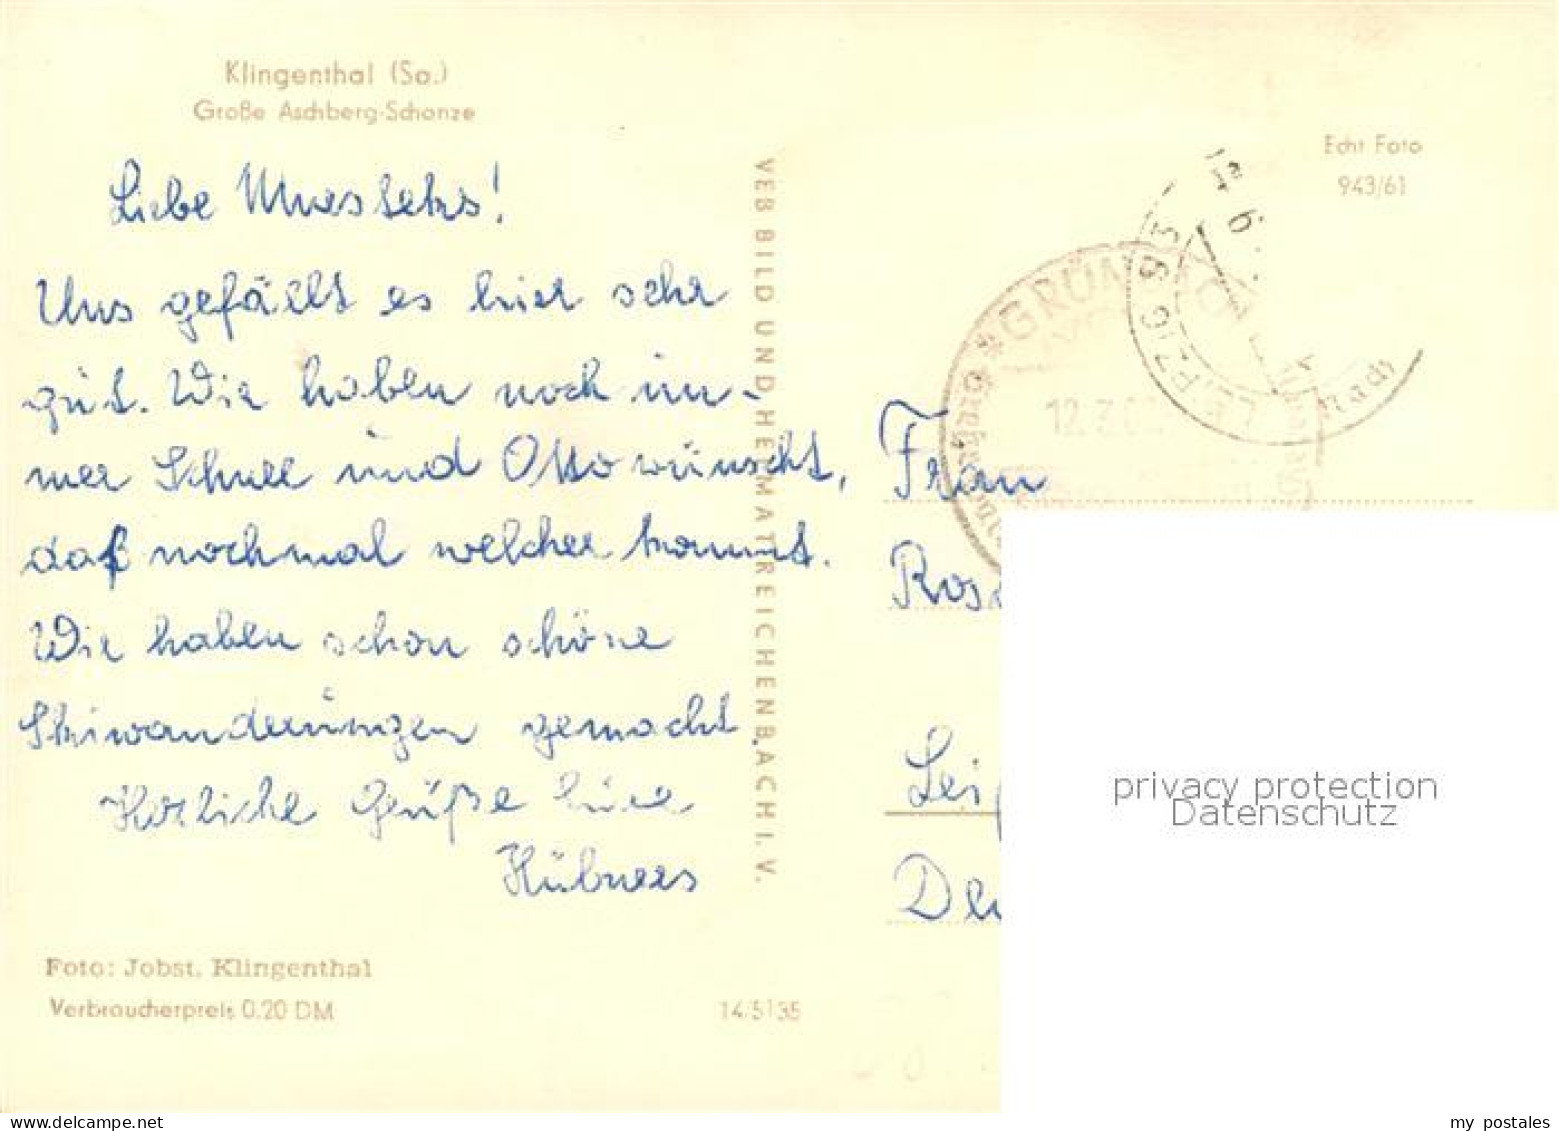 Klingenthal (Sa.)
Große Aschberg-Schanze
Liebe
Uns gefällt es hier sehr
gut. Wir haben noch im-
mer Schnee und Otto wünscht,
daß nochmal welcher kommt.
Wir haben schon schöne
Skiwanderungen gemacht.
Herzliche Grüße
Hübners
Foto: Jobst, Klingenthal
Verbraucherpreis 0,20 DM
14/5135
VEB BILD UND HEIMAT REICHENBACH I. V.
Echt Foto
943/61
LEIPZIG
GRÜN
12.3.6
Frau
privacy protection
Datenschutz
my postales